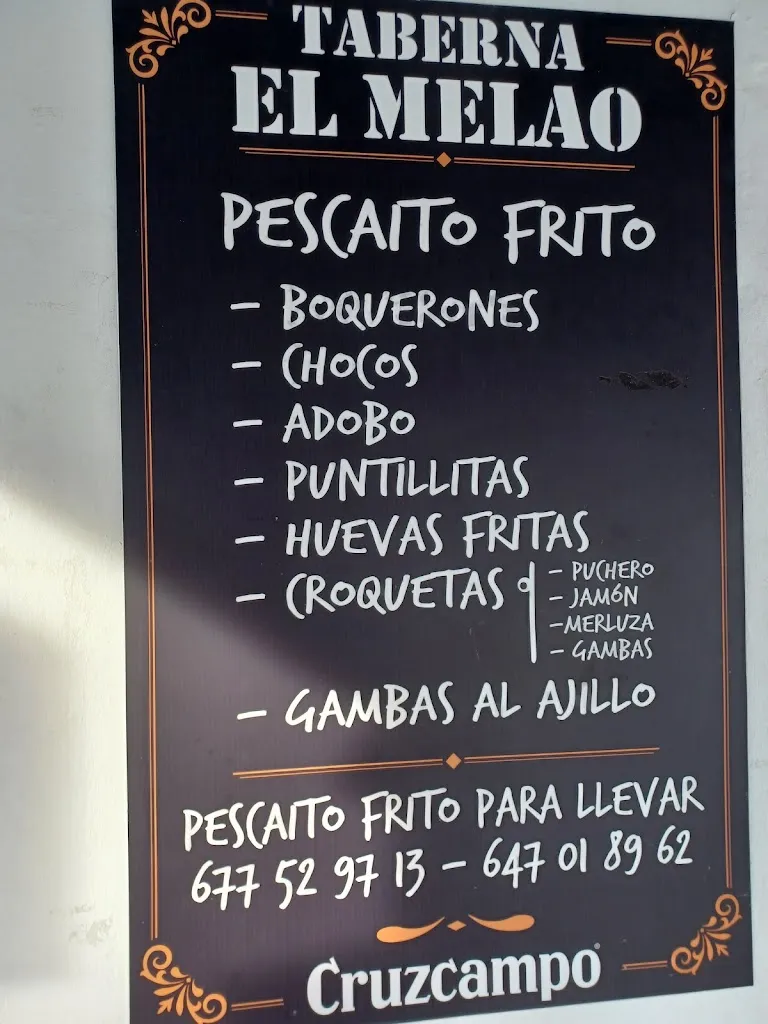 TABERNA
EL MELAO
PESCAITO FRITO
- BOQUERONES
- CHOCOS
- ADOBO
- PUNTILLITAS
- HUEVAS FRITAS
- CROQUETAS
- PUCHERO
- JAMÓN
- MERLUZA
- GAMBAS
- GAMBAS AL AJILLO
PESCAITO FRITO PARA LLEVAR
677 52 97 13 - 647 01 89 62
Cruzcampo